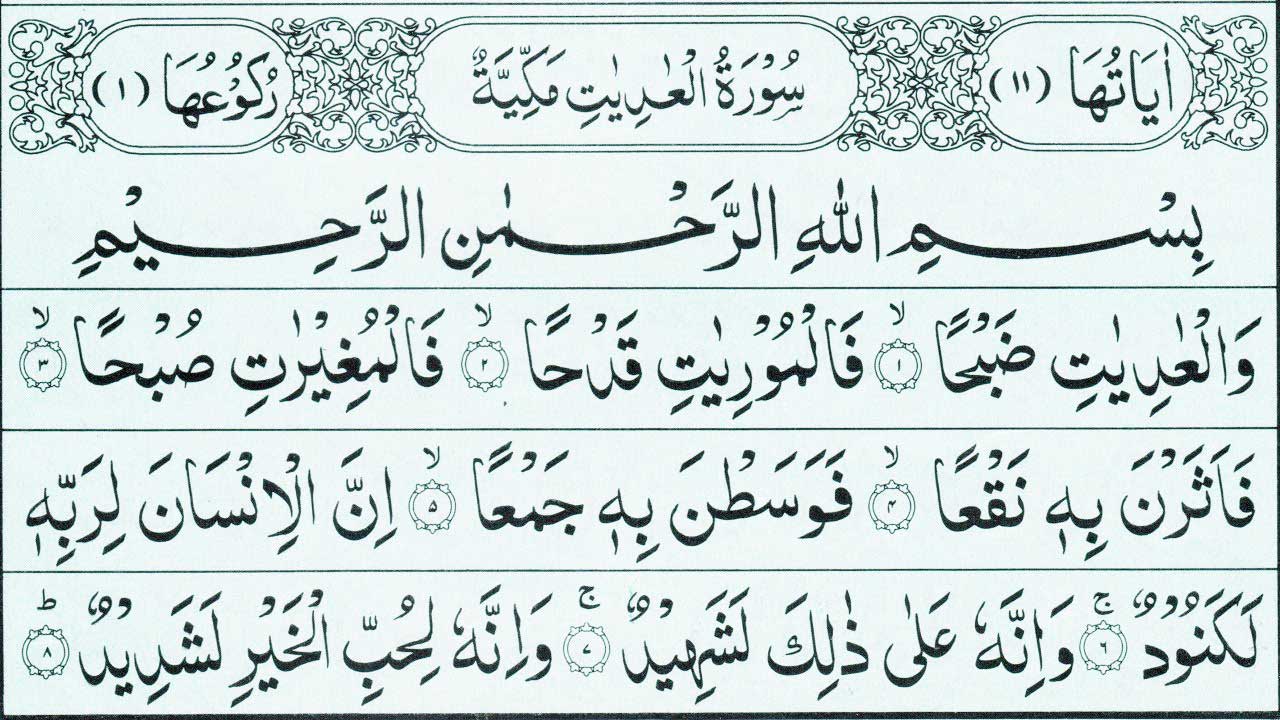 اٰيَاتُهَا (۱۱) سُوْرَةُ الْعٰدِيٰتِ مَكِّيَّةٌ رُكُوْعُهَا (۱)
بِسْمِ اللّٰهِ الرَّحْمٰنِ الرَّحِيْمِ
وَالْعٰدِيٰتِ ضَبْحًا ۙ﴿۱﴾ فَالْمُوْرِيٰتِ قَدْحًا ۙ﴿۲﴾ فَالْمُغِيْرٰتِ صُبْحًا ۙ﴿۳﴾
فَاَثَرْنَ بِهٖ نَقْعًا ۙ﴿۴﴾ فَوَسَطْنَ بِهٖ جَمْعًا ۙ﴿۵﴾ اِنَّ الْاِنْسَانَ لِرَبِّهٖ
لَكَنُوْدٌ ۚ﴿۶﴾ وَاِنَّهٗ عَلٰى ذٰلِكَ لَشَهِيْدٌ ۚ﴿۷﴾ وَاِنَّهٗ لِحُبِّ الْخَيْرِ لَشَدِيْدٌ ؕ﴿۸﴾